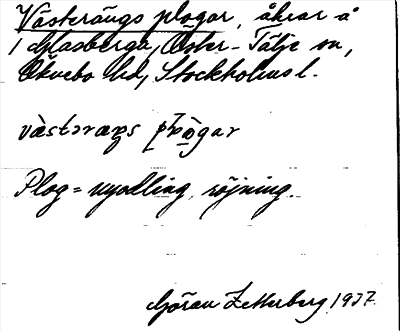 Västerängs plogar, åkrar å
Glasberga, Öster-Tälje sn,
Öknebo hd, Stockholms l.
Plog = nyodling, röjning.
Göran Zetterberg 1937